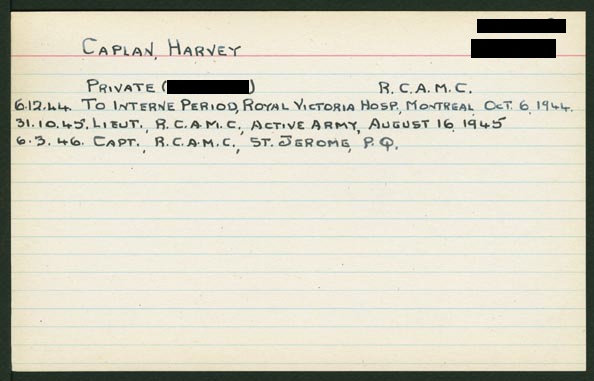 CAPLAN, HARVEY
PRIVATE ( ) R.C.A.M.C.
6.12.44. TO INTERNE PERIOD, ROYAL VICTORIA HOSP., MONTREAL OCT. 6, 1944.
31.10.45. LIEUT., R.C.A.M.C., ACTIVE ARMY, AUGUST 16, 1945
6.3.46. CAPT., R.C.A.M.C., ST. JEROME, P.Q.